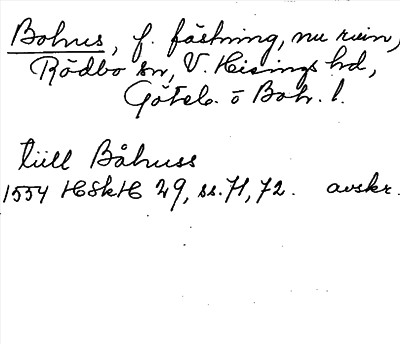 Bohus, f. fästning, nu ruin,
Rödbo sn, V. Hisings hd,
Göteb. o Boh. l.
till Båhuss
1554 HSkH 29, ss. 71, 72. avskr.